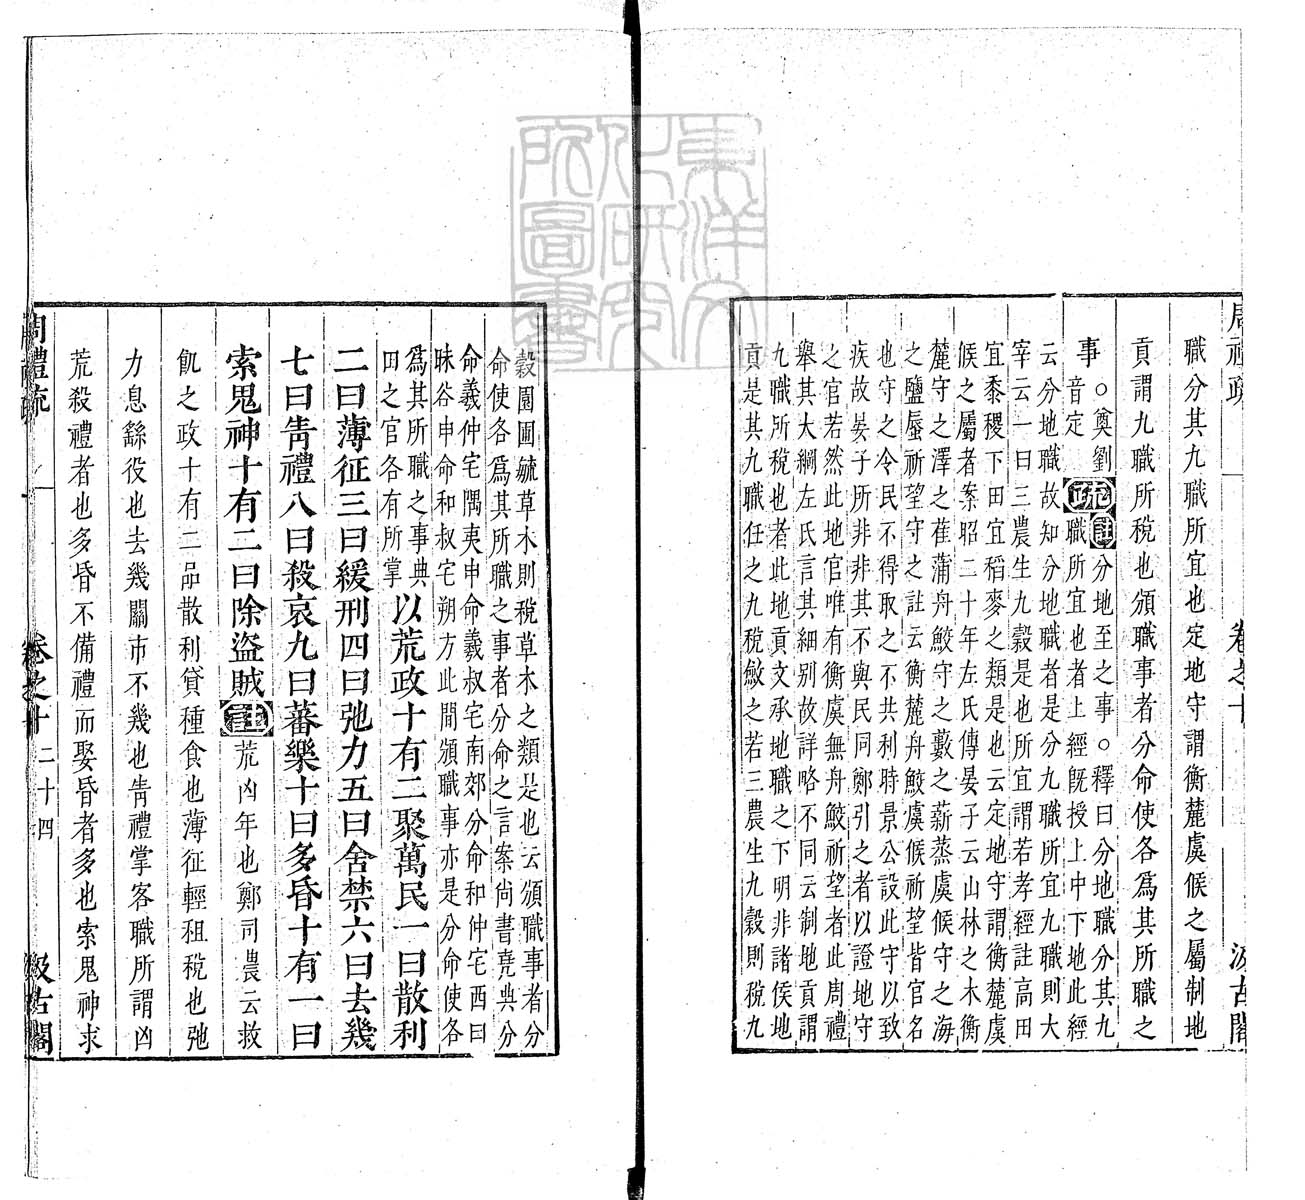 職分其九職所宜也定地守謂衡麓虞候之屬制地
貢謂九職所稅也頒職事者分命使各爲其所職之
事○奠劉
音定
疏
註
分地至之事○釋曰分地職分其九
職所宜也者上經旣授上中下地此經
云分地職故知分地職者是分九職所宜九職則大
宰云一曰三農生九穀是也所宜謂若孝經註高田
宜黍稷下田宜稻麥之類是也云定地守謂衡麓虞
候之屬者案昭二十年左氏傳晏子云山林之木衡
麓守之澤之萑蒲舟鮫守之藪之薪蒸虞候守之海
之鹽蜃祈望守之註云衡麓舟鮫虞候祈望皆官名
也守之令民不得取之不共利時景公設此守以致
疾故晏子所非非其不與民同鄭引之者以證地守
之官若然此地官唯有衡虞無舟鮫祈望者此周禮
舉其大綱左氏言其細别故詳略不同云制地貢謂
九職所稅也者此地貢文承地職之下明非諸侯地
貢是其九職任之九稅斂之若三農生九穀則稅九
周禮疏
卷之十
汲古閣
穀園圃毓草木則稅草木之類是也云頒職事者分
命使各爲其所職之事者分命之言案尚書堯典分
命羲仲宅隅夷申命羲叔宅南郊分命和仲宅西曰
昧谷申命和叔宅朔方此間頒職事亦是分命使各
爲其所職之事典
田之官各有所掌
以荒政十有二聚萬民一曰散利
二曰薄征三曰緩刑四曰弛力五曰舍禁六曰去幾
七曰眚禮八曰殺哀九曰蕃樂十曰多昏十有一曰
索鬼神十有二曰除盜賊
註
荒凶年也鄭司農云救
飢之政十有二品散利貸種食也薄征輕租稅也弛
力息繇役也去幾關市不幾也眚禮掌客職所謂凶
荒殺禮者也多昏不備禮而娶昏者多也索鬼神求
周禮疏
卷之十
二十四
汲古閣
東洋文化研究所圖書